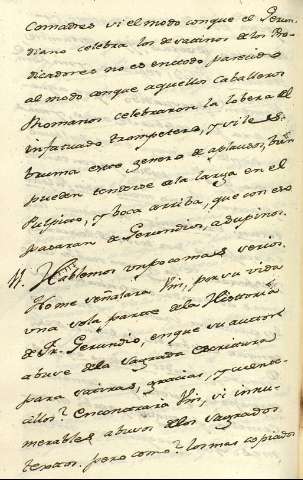 Comadres vi el modo con que el Gerun-
diano celebra los desatinos de los Pre-
dicadores no es en todo parecido
al modo con que aquellos Caballeros
Romanos celebraron la lobera el
infatuado trompetero, y viles.
bruma este genero de aplausos, bien
pueden tenderse a la larga en el
Pulpito, y boca arriba, que con eso
pasaran de Gerundios, a dupinos.
11. Hablemos un poco mas serios.
Home señalara Vm, por su vida
una sola parte de la Historia
de Fr. Gerundio, en que su autor
abuse de la sagrada escritura
para satiras, gracias, y cuente-
cillos? Encontrará Vm, si innu-
merables abusos de los sagrados
textos. pero como? los mas copiados